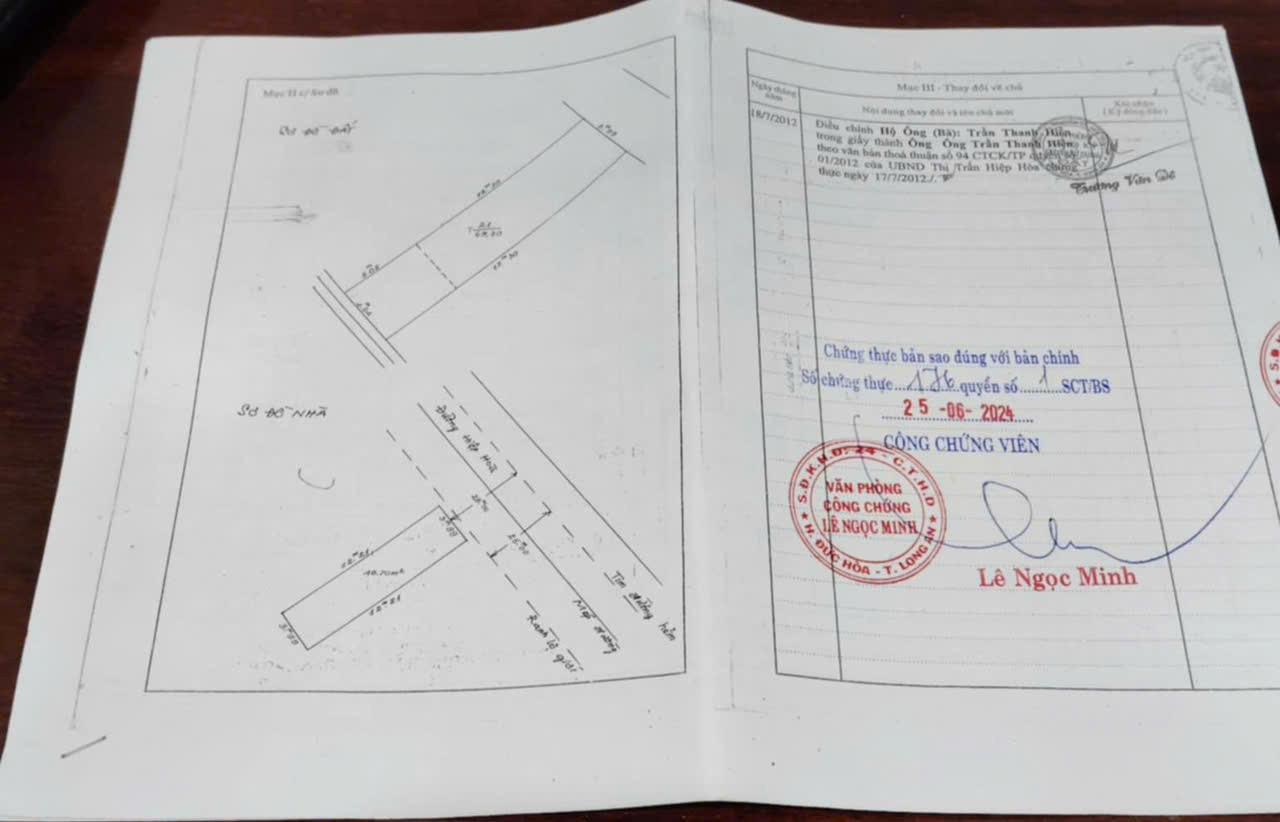 Mục II c/ Sơ đồ
SƠ ĐỒ ĐẤT
SƠ ĐỒ NHÀ
Đường Hiệp Hoà
Tim đường hẻm
Mép đường
Ranh lộ giới
Mục III - Thay đổi về chủ
Ngày tháng năm
Nội dung thay đổi và tên chủ mới
Xác nhận
(Ký đóng dấu)
18/7/2012
Điều chỉnh Hộ Ông (Bà): Trần Thanh Hiền
trong giấy thành Ông Ông Trần Thanh Hiền
theo văn bản thoả thuận số 94 CTCK/TP quyển số
01/2012 của UBND Thị Trấn Hiệp Hòa chứng
thực ngày 17/7/2012./.
Trương Văn
Chứng thực bản sao đúng với bản chính
Số chứng thực...176 quyển số...1...SCT/BS
25 -06- 2024
CÔNG CHỨNG VIÊN
S.Đ.K.H.Đ: 24 - C.T.H.D
VĂN PHÒNG
CÔNG CHỨNG
LÊ NGỌC MINH
H. ĐỨC HÒA - T. LONG AN
Lê Ngọc Minh